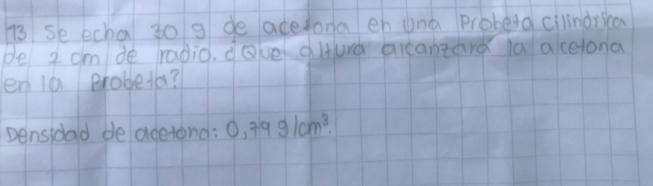 13 Se echa 30 g de acetona en una Probeta cilindrica
de 2 cm de radio. ¿Que altura alcanzará la acetona
en la Probeta?
Densidad de acetona: 0,79 g/cm³.